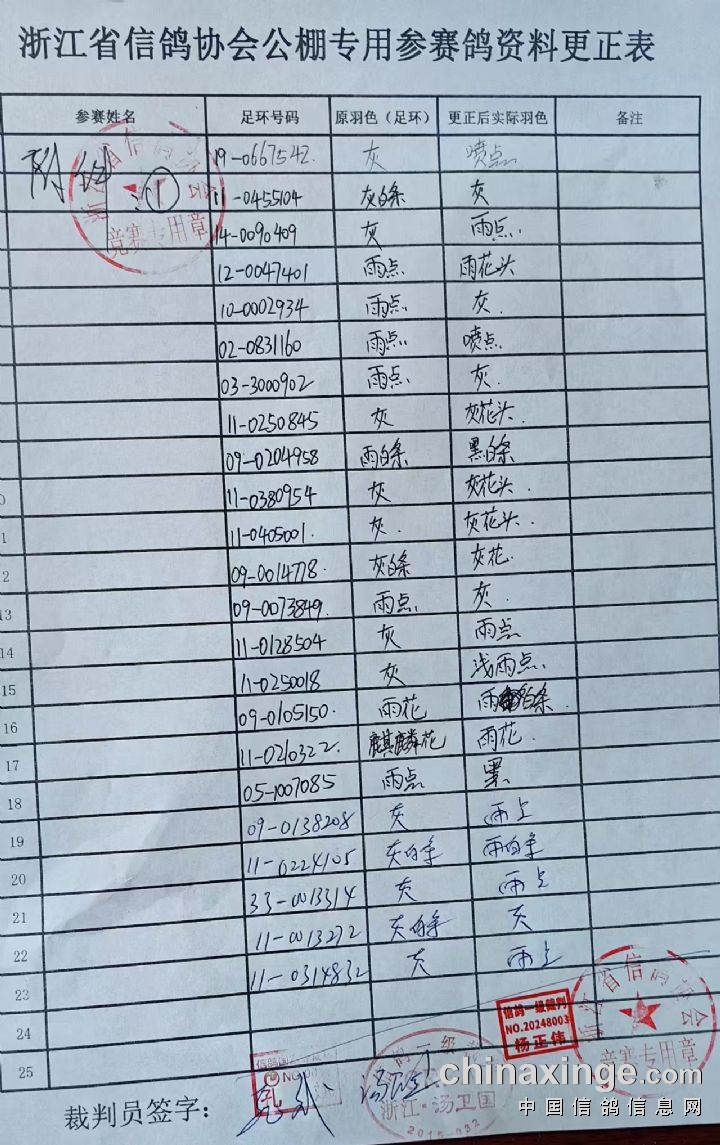 浙江省信鸽协会公棚专用参赛鸽资料更正表
参赛姓名 足环号码 原羽色（足环） 更正后实际羽色 备注
19-0667542. 灰 喷点.
① 11-0455104 灰白条 灰
14-0090409 灰 雨点.
12-0047401 雨点 雨花头
10-0002934 雨点 灰.
02-0831160 雨点 喷点
03-3000902 雨点 灰.
11-0250845 灰 灰花头.
09-0204958 雨白条 黑白条
0 11-0380954 灰 灰花头.
1 11-0405001. 灰. 灰花头.
2 09-0014778. 灰白条 灰花.
13 09-0073849. 雨点 灰.
14 11-0128504 灰 雨点
15 11-0250018 灰 浅雨点.
16 09-0105150. 雨花 雨白条.
17 11-0210322. 麒麟花 雨花.
18 05-1007085 雨点 黑
19 09-0138208 灰 雨点
20 11-0224105 灰白条 雨白条
21 33-0013314 灰 雨点
22 11-0013272 灰白条 灰
23 11-0314832 灰 雨点
24
25
裁判员签字：
浙江省信鸽协会
竞赛专用章
浙江省信鸽协会
竞赛专用章
信鸽一级裁判
NO.20248003
杨正伟
浙江·汤卫国
chinaxinge.com
中国信鸽信息网